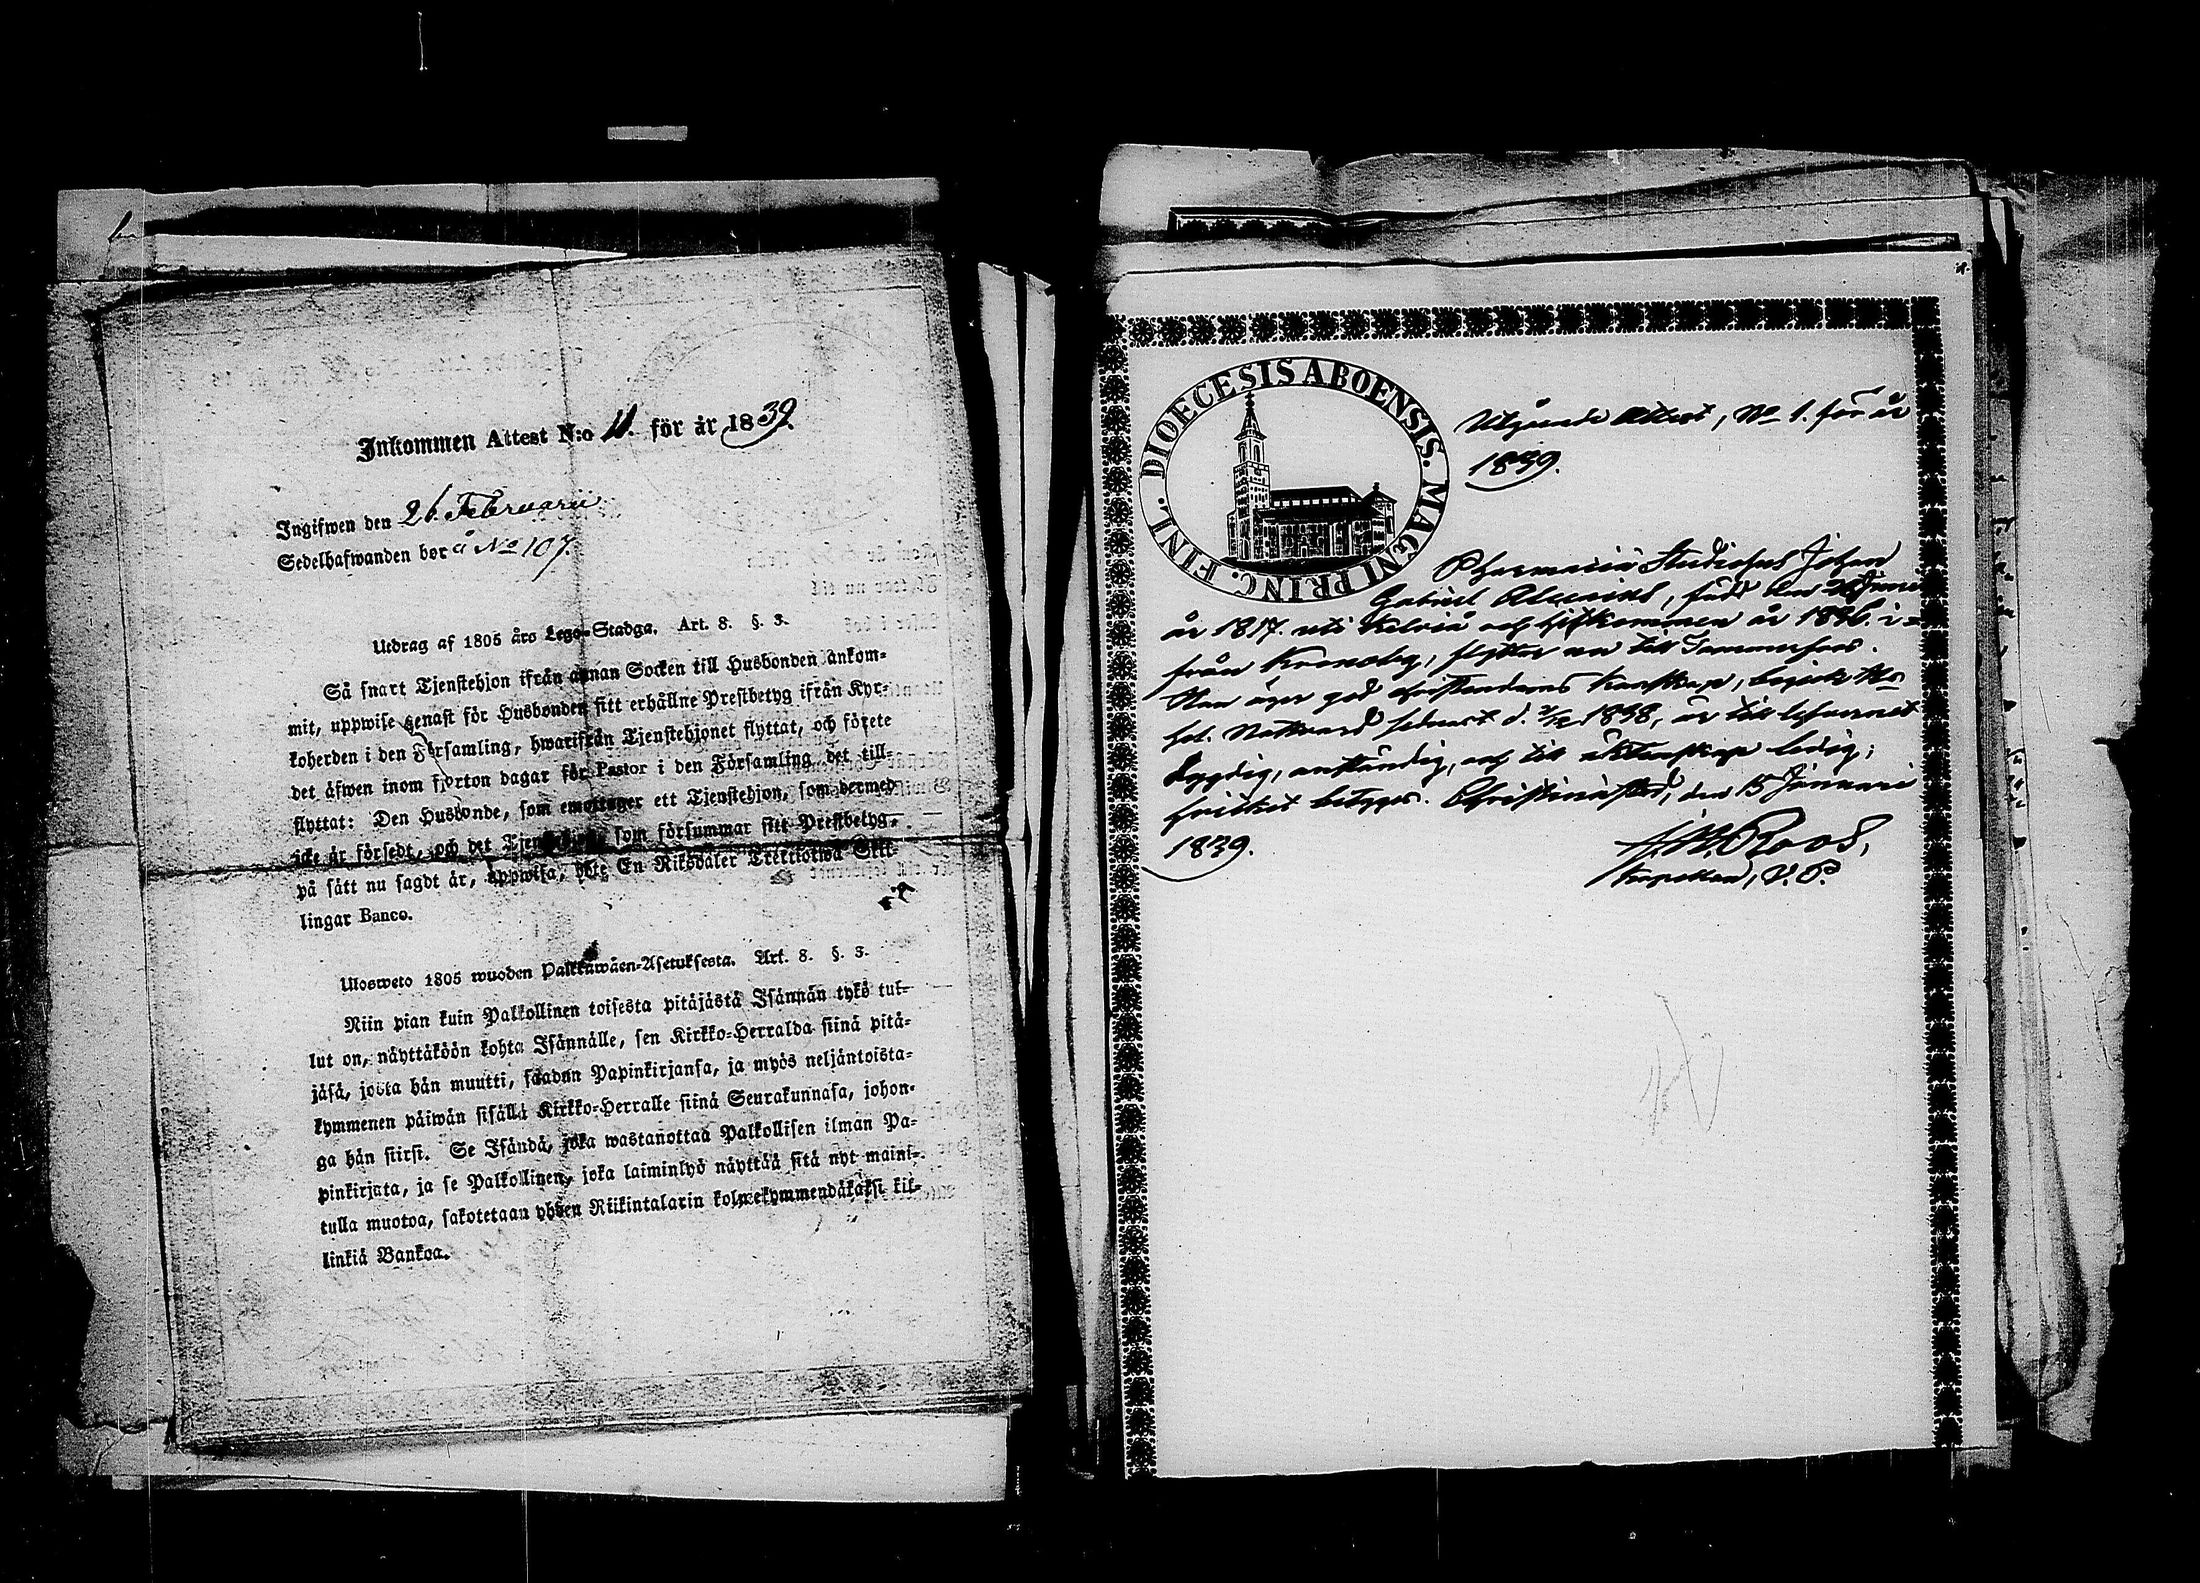 Inkommen Attest N:o 11. för år 1839.
Ingifwen den 26. Februarii
Sedelhafwanden bor å No 107.
Utdrag af 1805 års Lego-Stadga. Art. 8. §. 3.
Så snart Tjenstehjon ifrån annan Socken till Husbonden ankom-
mit, uppwise genast för Husbonden sitt erhållne Prestbetyg ifrån Kyr-
koherden i den Församling, hwarifrån Tjenstehjonet flyttat, och förete
det äfwen inom fjorton dagar för Pastor i den Församling det till-
flyttat: Den Husbonde, som emottager ett Tjenstehjon, som dermed
icke är försedt, och det Tjenstehjon, som försummar sitt Prestbetyg,
på sätt nu sagdt är, uppwisa, böte En Riksdaler Trettiotwå Skil-
lingar Banco.
Ulosweto 1805 wuoden Palkkawäen-Asetuksesta. Art. 8. §. 3.
Niin pian kuin Palkollinen toisesta pitäjästä Isännän tykö tul-
lut on, näyttäköön kohta Isännälle, sen Kirkko-Herralda siinä pitä-
jäsä, josta hän muutti, saadun Papinkirjansa, ja myös neljäntoista-
kymmenen päiwän sisällä Kirkko-Herralle siinä Seurakunnasa, johon-
ga hän siirsi. Se Isändä, joka wastanottaa Palkollisen ilman Pa-
pinkirjata, ja se Palkollinen, joka laiminlyö näyttää sitä nyt maini-
tulla muotoa, sakotetaan yhden Riikintalarin kolmekymmendäkaksi kil-
linkiä Bankoa.
DIOECESIS ABOENSIS. MAGNI PRINC. FINL.
Utgående Attest, No 1. för år
1839.
Pharmaciæ Studiosus Johan
Gabriel, född den Junii
år 1817. uti Kelviå och hitkommen år 1836. i-
från Kronoby, flyttar nu till Tammerfors.
Han äger god christendoms kunskap, begick H.
hel. Nattvard senast d. 1838, är till lefvernet
dygdig, anständig, och till äktenskap ledig;
hvilket betygar. Christinæstad, den 15 Januarii
1839.
Roos,
Kapellan, V. P.